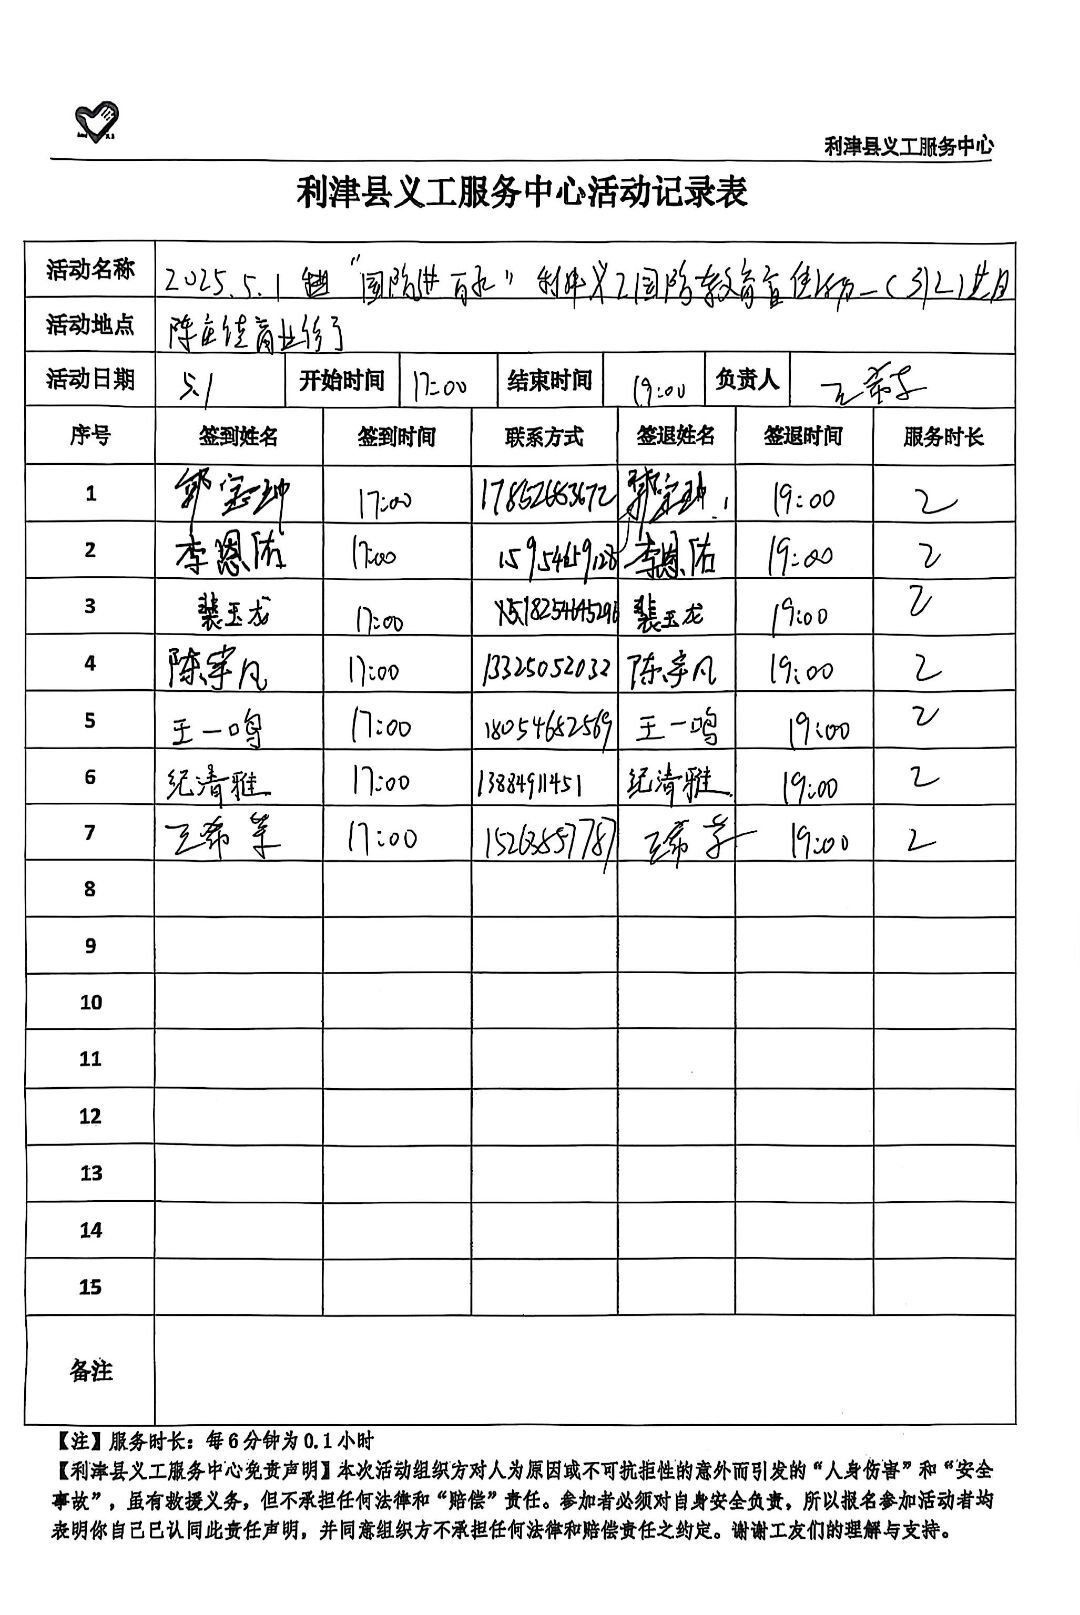 利津县义工服务中心
利津县义工服务中心活动记录表
活动名称 2025.5.1 "国防进百机" 利津义工国防教育宣传活动一(312)
活动地点 陈庄镇商业街
活动日期 5.1 开始时间 17:00 结束时间 19:00 负责人 王希孝
序号 签到姓名 签到时间 联系方式 签退姓名 签退时间 服务时长
1 郭宝珅 17:00 17852683672 郭宝珅 19:00 2
2 李恩佑 17:00 李恩佑 19:00 2
3 裴玉龙 17:00 裴玉龙 19:00 2
4 陈宇凡 17:00 13325052032 陈宇凡 19:00 2
5 王一鸣 17:00 18054682569 王一鸣 19:00 2
6 纪清雅 17:00 13884911451 纪清雅 19:00 2
7 王希 17:00 王希 19:00 2
8
9
10
11
12
13
14
15
备注
【注】服务时长：每6分钟为0.1小时
【利津县义工服务中心免责声明】本次活动组织方对人为原因或不可抗拒性的意外而引发的“人身伤害”和“安全
事故”，虽有救援义务，但不承担任何法律和“赔偿”责任。参加者必须对自身安全负责，所以报名参加活动者均
表明你自己已认同此责任声明，并同意组织方不承担任何法律和赔偿责任之约定。谢谢工友们的理解与支持。